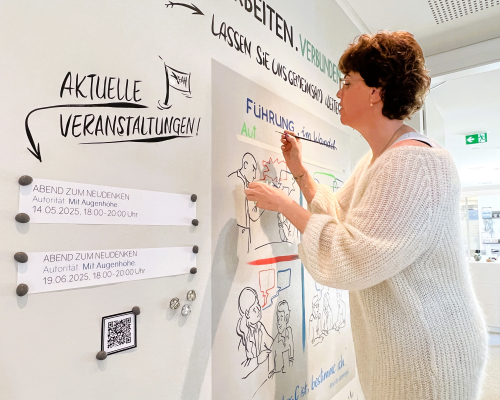 ARBEITEN. VERBUNDEN
LASSEN SIE UNS GEMEINSAM WEITER
AKTUELLE
VERANSTALTUNGEN!
ABEND ZUM NEUDENKEN
Autorität. Mit Augenhöhe.
14.05.2025, 18:00-20:00 Uhr
ABEND ZUM NEUDENKEN
Autorität. Mit Augenhöhe.
19.06.2025, 18.00-20:00 Uhr
FÜHRUNG im Wandel
Aut
ist, bestimme ich